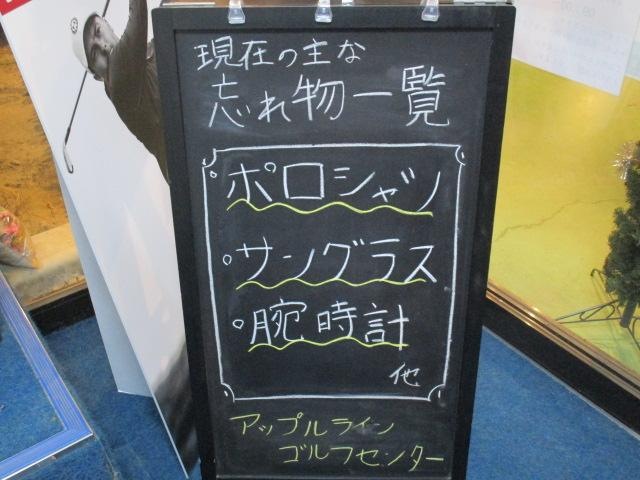 現在の主な
忘れ物一覧
ポロシャツ
サングラス
腕時計
他
アップルライン
ゴルフセンター